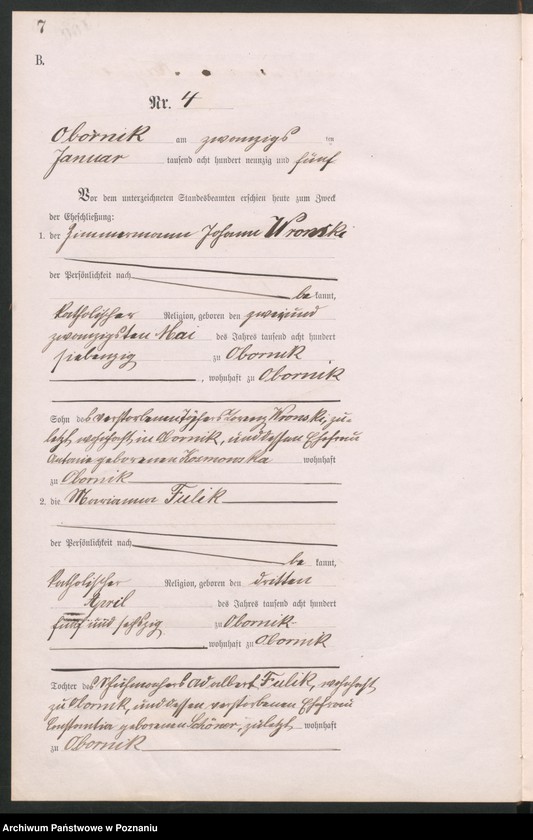 7
B.
Nr. 4
Obornik am zwanzigsten
Januar tausend acht hundert neunzig und fünf
Vor dem unterzeichneten Standesbeamten erschien heute zum Zweck
der Eheschließung:
1. der Zimmermann Johann Wronski
der Persönlichkeit nach
be kannt,
katholischer Religion, geboren den zweiund
zwanzigsten Mai des Jahres tausend acht hundert
siebenzig zu Obornik
, wohnhaft zu Obornik
Sohn des verstorbenen Töpfers Lorenz Wronski, zu-
letzt wohnhaft in Obornik, und dessen Ehefrau
Antonie geborenen wohnhaft
zu Obornik
2. die Marianna Fulik
der Persönlichkeit nach
be kannt,
katholischer Religion, geboren den dritten
April des Jahres tausend acht hundert
fünf und sechzig zu Obornik
, wohnhaft zu Obornik
Tochter des Schuhmachers Adalbert Fulik, wohnhaft
zu Obornik, und dessen verstorbenen Ehefrau
Constantia geborenen zuletzt wohnhaft
zu Obornik
Archiwum Państwowe w Poznaniu